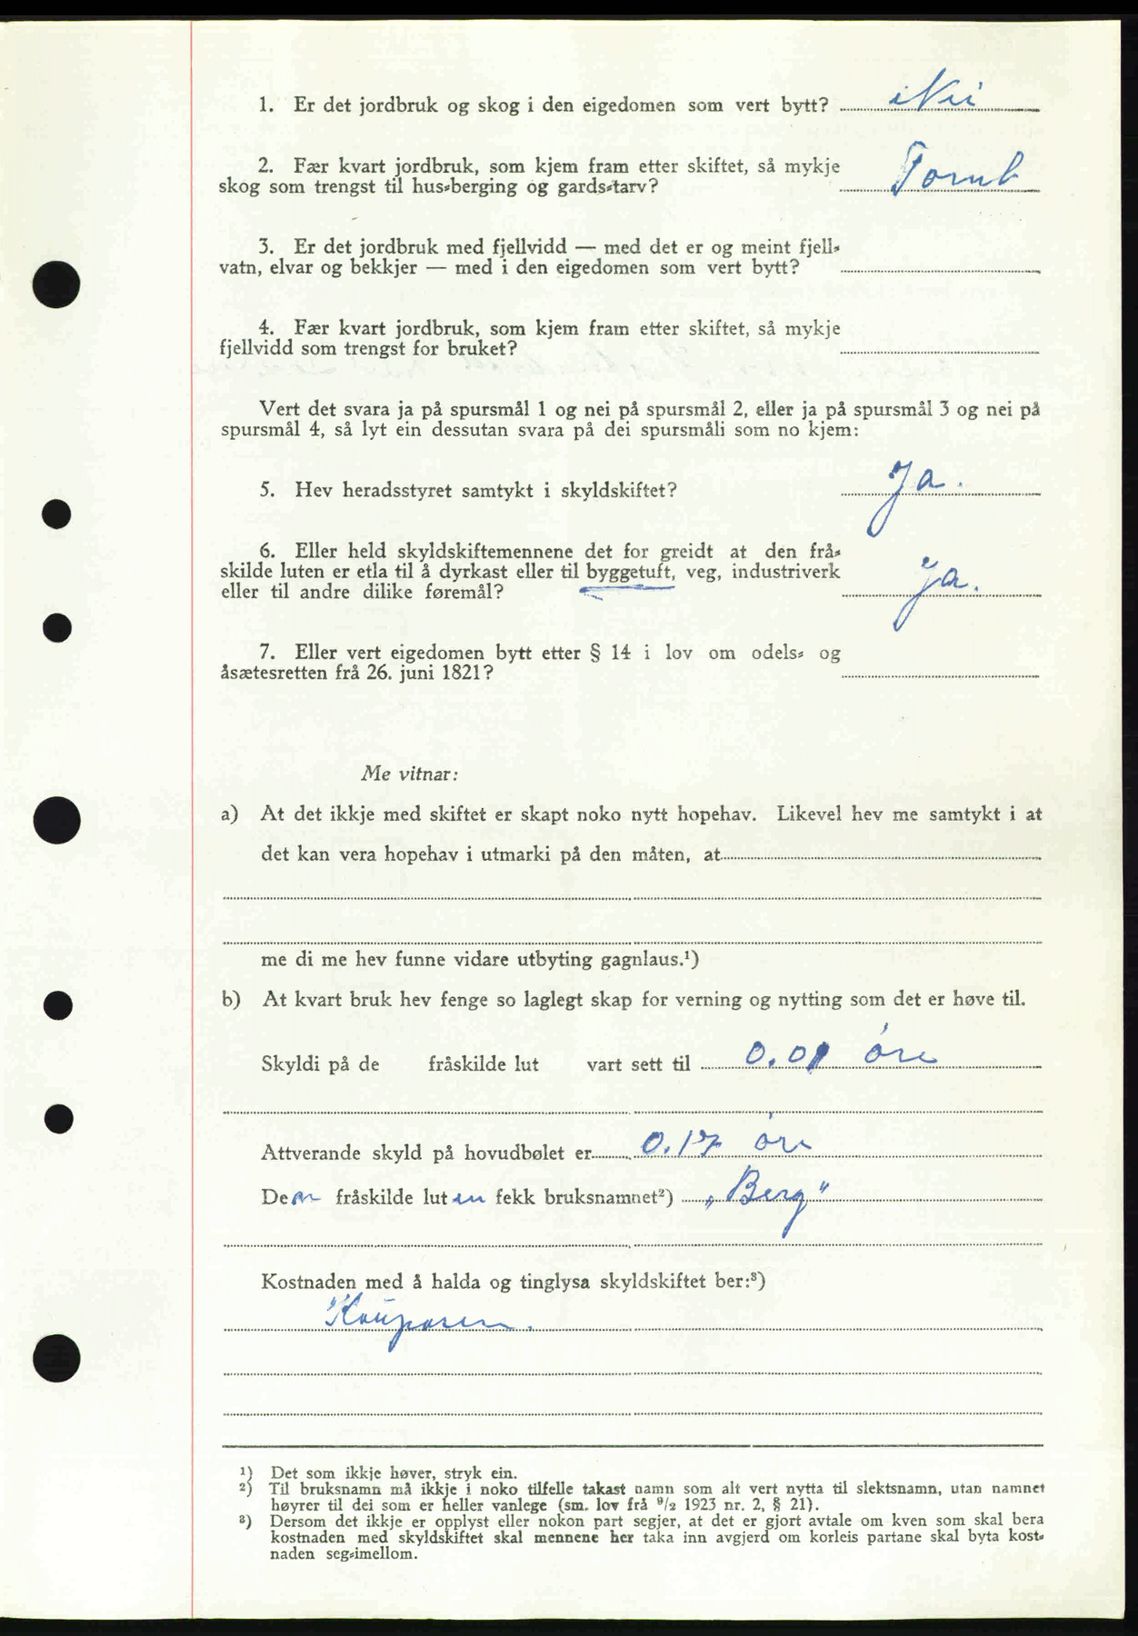 1. Er det jordbruk og skog i den eigedomen som vert bytt? Nei
2. Fær kvart jordbruk, som kjem fram etter skiftet, så mykje
skog som trengst til hus-berging og gards-tarv?
3. Er det jordbruk med fjellvidd — med det er og meint fjell-
vatn, elvar og bekkjer — med i den eigedomen som vert bytt?
4. Fær kvart jordbruk, som kjem fram etter skiftet, så mykje
fjellvidd som trengst for bruket?
Vert det svara ja på spursmål 1 og nei på spursmål 2, eller ja på spursmål 3 og nei på
spursmål 4, så lyt ein dessutan svara på dei spursmåli som no kjem:
5. Hev heradsstyret samtykt i skyldskiftet? Ja.
6. Eller held skyldskiftemennene det for greidt at den frå-
skilde luten er etla til å dyrkast eller til byggetuft, veg, industriverk
eller til andre dilike føremål? Ja.
7. Eller vert eigedomen bytt etter § 14 i lov om odels- og
åsætesretten frå 26. juni 1821?
Me vitnar:
a) At det ikkje med skiftet er skapt noko nytt hopehav. Likevel hev me samtykt i at
det kan vera hopehav i utmarki på den måten, at
me di me hev funne vidare utbyting gagnlaus.¹)
b) At kvart bruk hev fenge so laglegt skap for verning og nytting som det er høve til.
Skyldi på de fråskilde lut vart sett til 0.01 øre
Attverande skyld på hovudbølet er 0.17 øre
Den fråskilde luten fekk bruksnamnet²) „Berg"
Kostnaden med å halda og tinglysa skyldskiftet ber:³)
Kjøparen.
¹) Det som ikkje høver, stryk ein.
²) Til bruksnamn må ikkje i noko tilfelle takast namn som alt vert nytta til slektsnamn, utan namnet
høyrer til dei som er heller vanlege (sm. lov frå ⁹/₂ 1923 nr. 2, § 21).
³) Dersom det ikkje er opplyst eller nokon part segjer, at det er gjort avtale om kven som skal bera
kostnaden med skyldskiftet skal mennene her taka inn avgjerd om korleis partane skal byta kost-
naden seg-imellom.